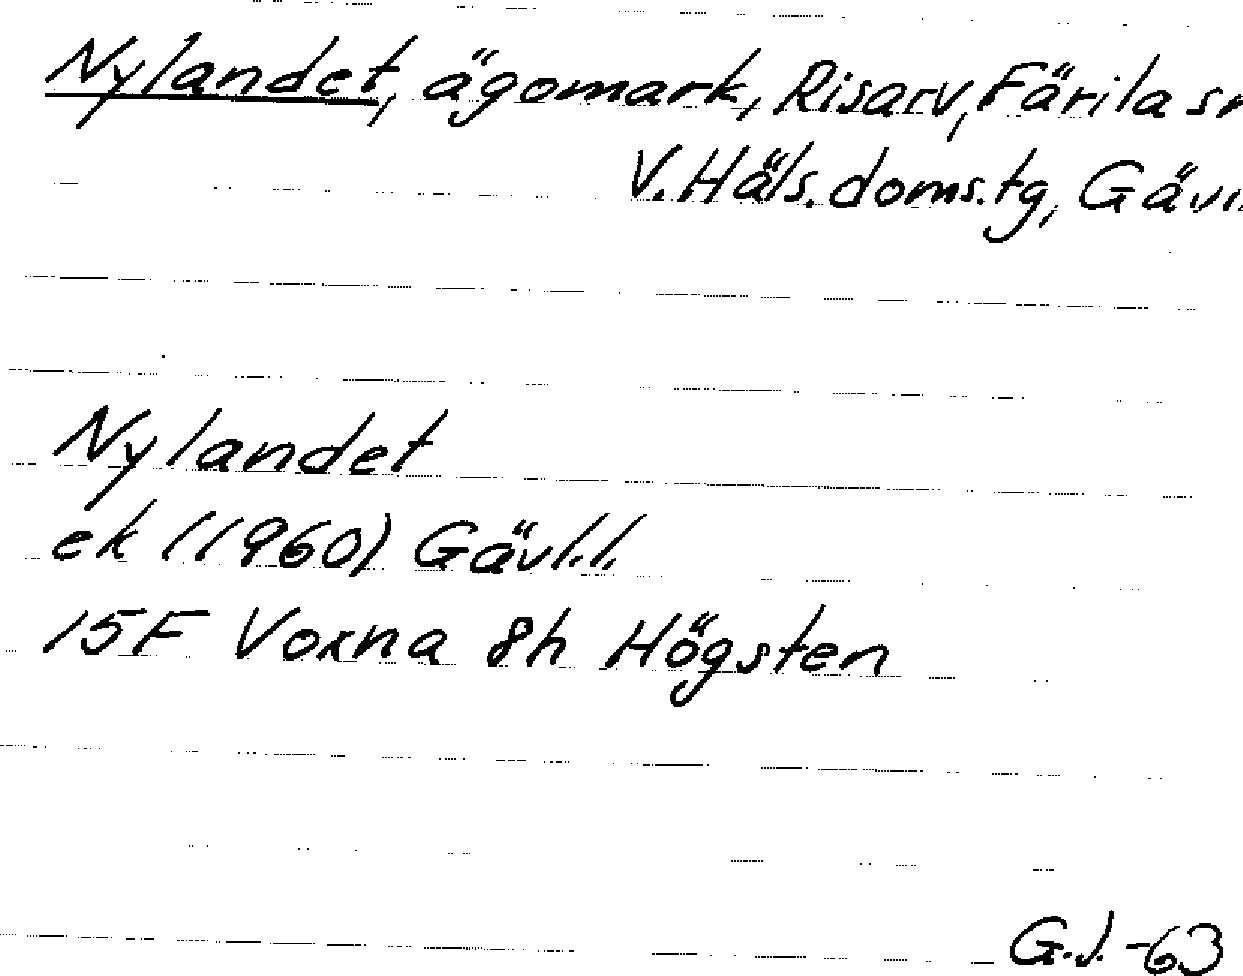 Nylandet, ägomark, Risarv, Färila sn
V. Häls. doms. tg, Gävl.
Nylandet
ek (1960) Gävl.l.
15F Voxna 8h Högsten
G.J. -63